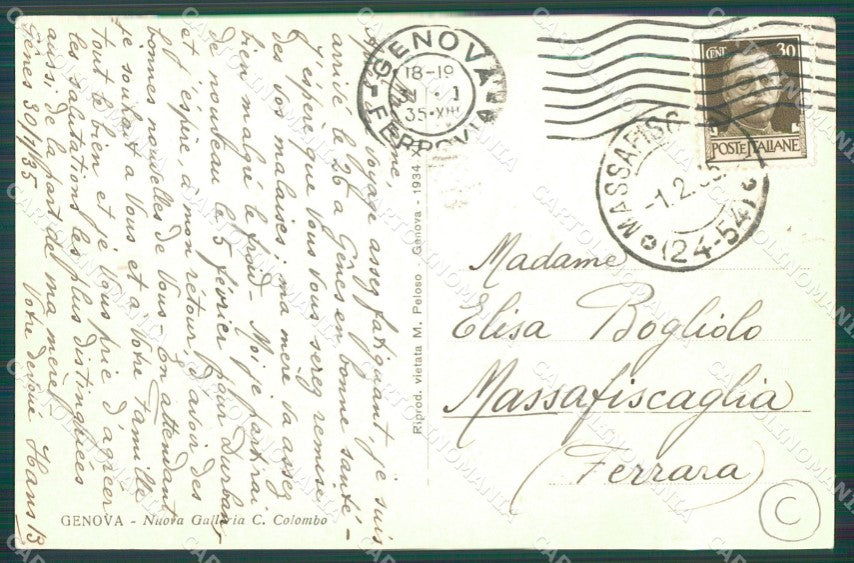 GENOVA
18-19
35·XIII
FERROVIA
CENT 30
POSTE ITALIANE
MASSAFISC
-1.2.35
(24-54)
voyage assez fatiguant, je suis
arrivé le 26 a Gênes en bonne santé -
J'éspère que Vous Vous serez remise
des vos malaises; ma mère va assez
bien malgré le froid - Moi je partirai
de nouveau le 5 février pour Durban,
et j'éspire à mon retour, d'avoir des
bonnes nouvelles de Vous - En attendant
je souhait a Vous et a Votre famille
tout le bien et je Vous prie d'agréer
les salutations les plus distinguées
aussi de la part de ma mère,
Votre devoué Hans B
Gênes 30/1/35
Riprod. vietata M. Peloso - Genova - 1934 - XII
Madame
Elisa Bogliolo
Massafiscaglia
(Ferrara)
C
GENOVA - Nuova Galleria C. Colombo
CARTOLINOMANIA